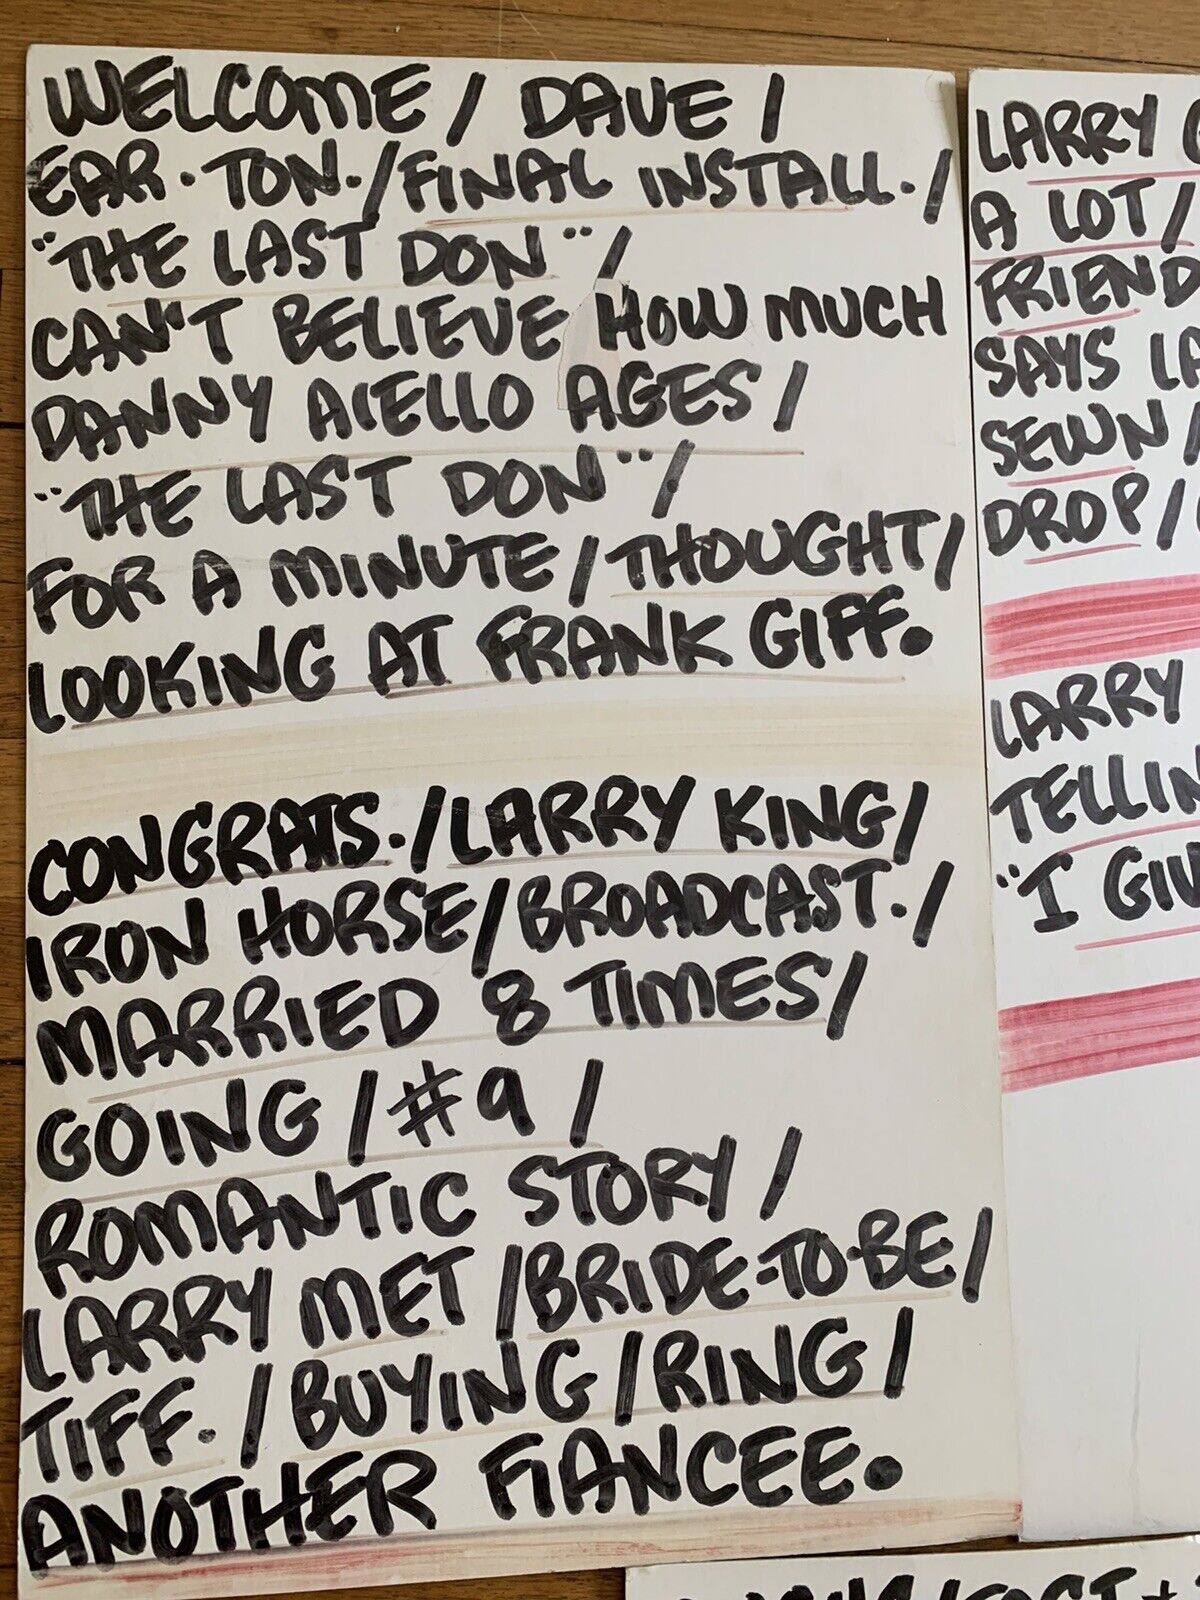 WELCOME / DAVE /
EAR. TON. / FINAL INSTALL. /
"THE LAST DON" /
CAN'T BELIEVE HOW MUCH
DANNY AIELLO AGES /
"THE LAST DON" /
FOR A MINUTE / THOUGHT /
LOOKING AT FRANK GIFF.
CONGRATS. / LARRY KING /
IRON HORSE / BROADCAST. /
MARRIED 8 TIMES /
GOING / #9 /
ROMANTIC STORY /
LARRY MET / BRIDE-TO-BE /
TIFF. / BUYING / RING /
ANOTHER FIANCEE.
LARRY
A LOT /
FRIEND
SAYS LA
SEWN /
DROP /
LARRY
TELLIN
"I GIV